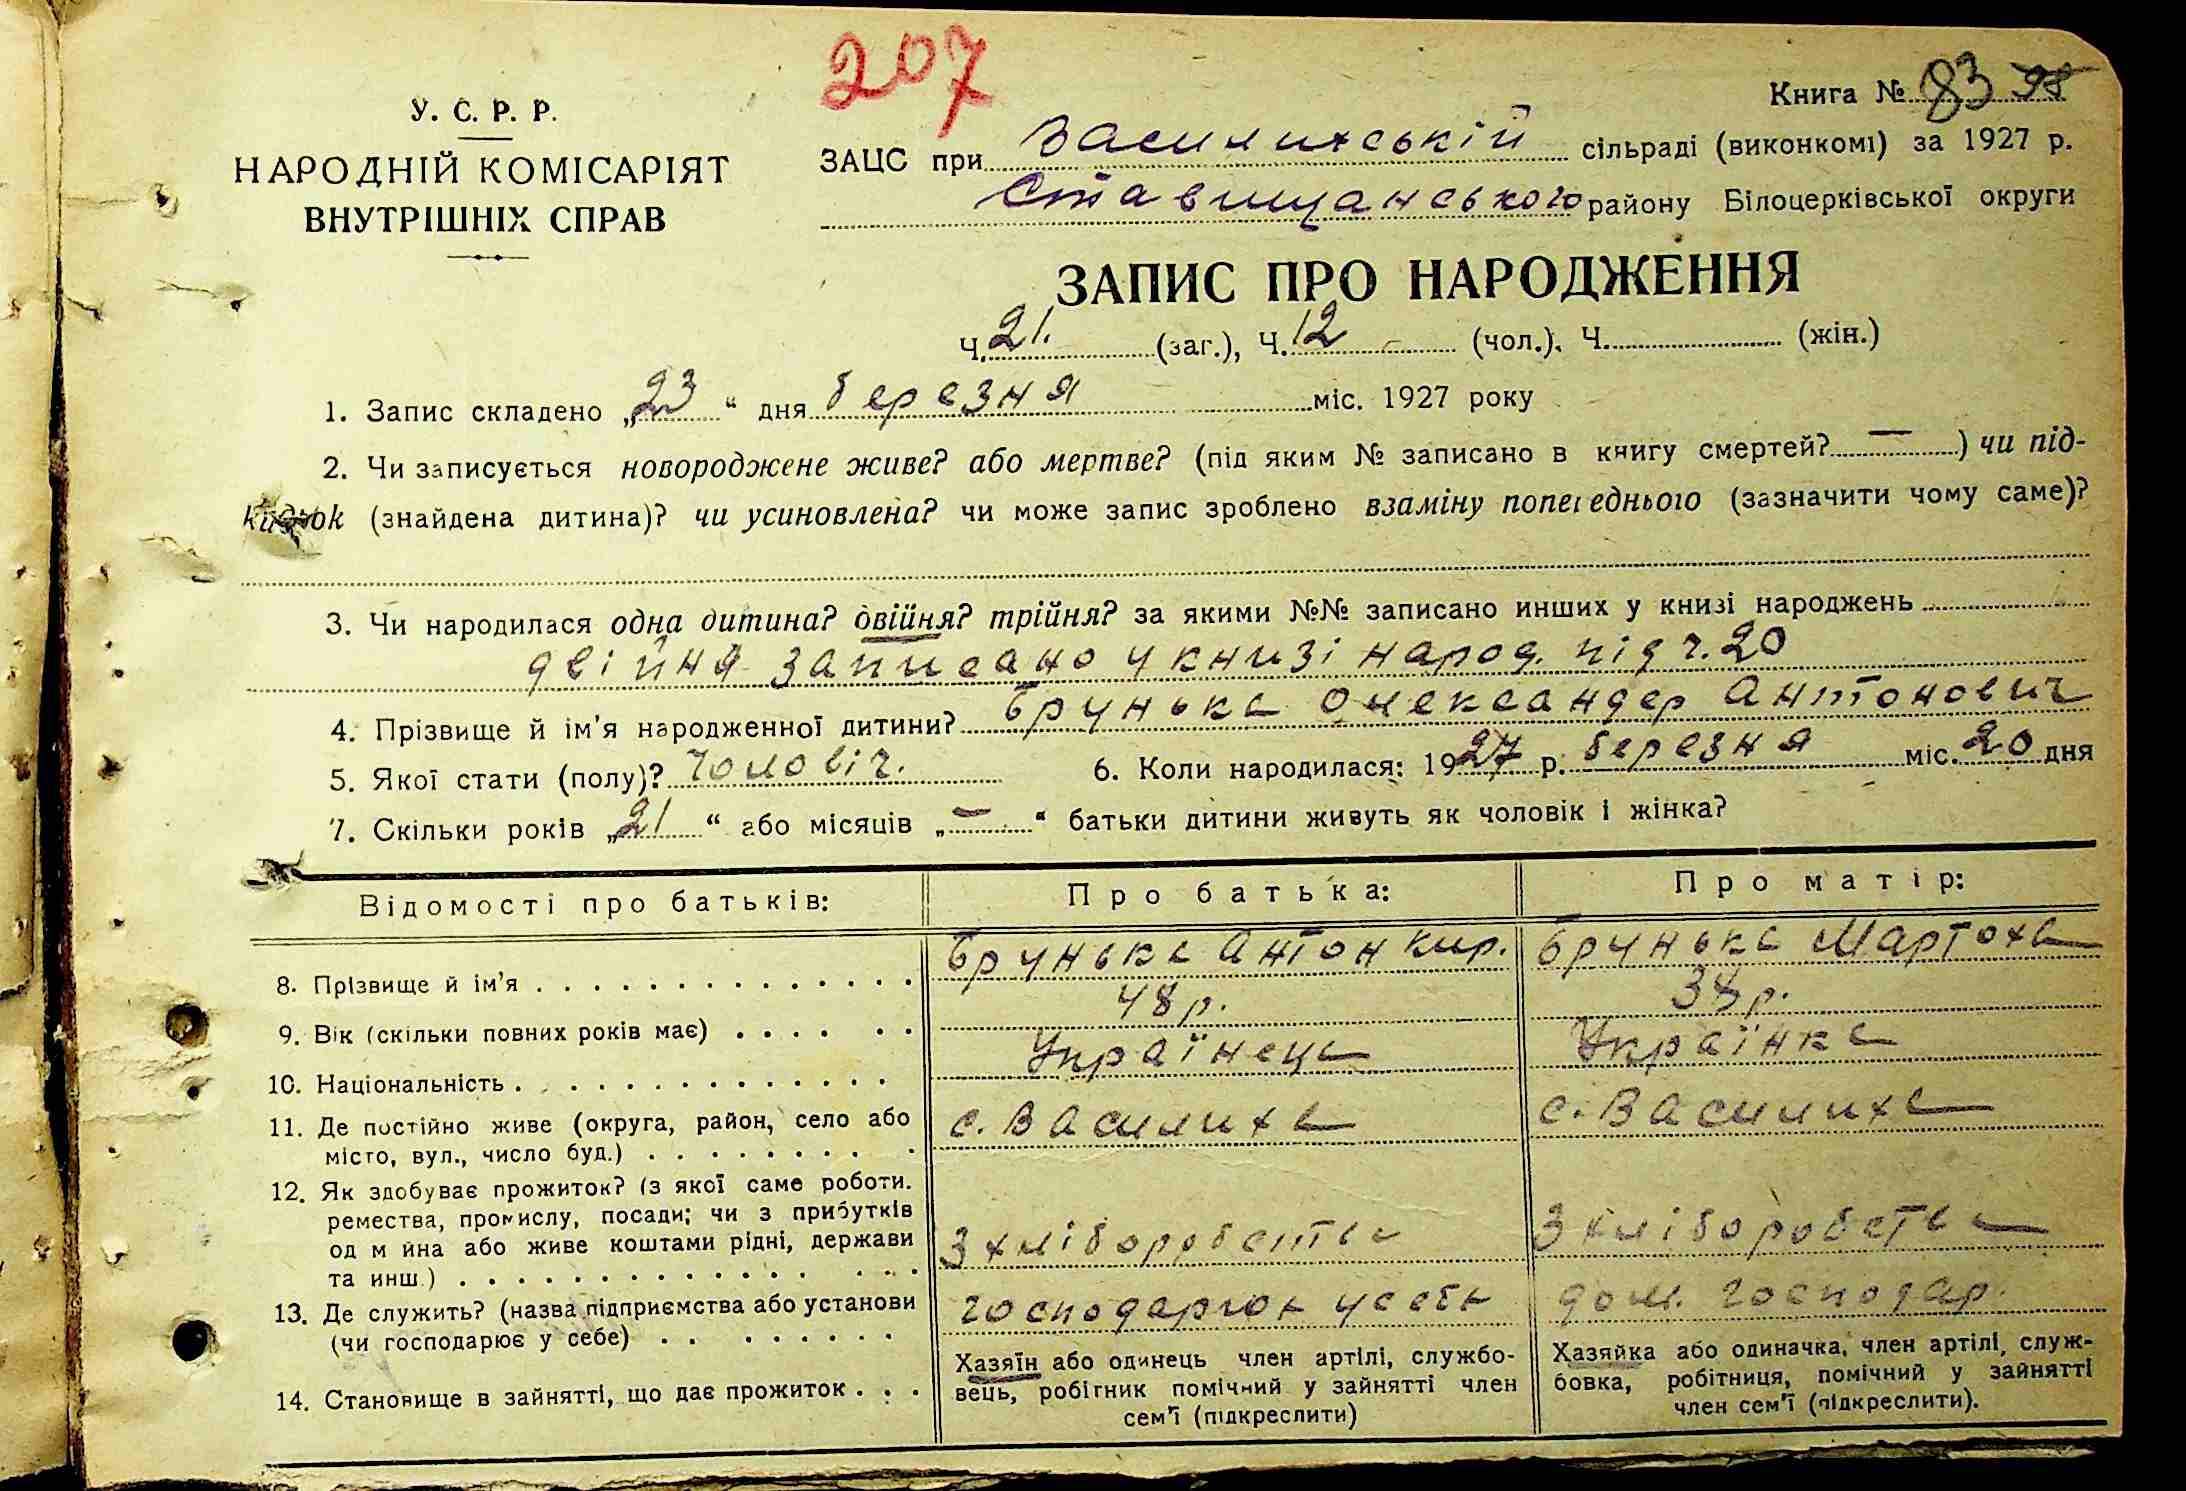 207
Книга № 83 98
У. С. Р. Р.
НАРОДНІЙ КОМІСАРІЯТ
ВНУТРІШНІХ СПРАВ
ЗАЦС при Василихській сільраді (виконкомі) за 1927 р.
Ставищанського району Білоцерківської округи
ЗАПИС ПРО НАРОДЖЕННЯ
Ч. 21. (заг.), Ч. 12 (чол.), Ч. (жін.)
1. Запис складено „23“ дня березня міс. 1927 року
2. Чи записується новороджене живе? або мертве? (під яким № записано в книгу смертей? — ) чи під-
кидьок (знайдена дитина)? чи усиновлена? чи може запис зроблено взаміну попереднього (зазначити чому саме)?
3. Чи народилася одна дитина? двійня? трійня? за якими №№ записано инших у книзі народжень
двійня записано у книзі народ. під ч. 20
4. Прізвище й ім’я народженної дитини? Брунька Олександер Антонович
5. Якої стати (полу)? чоловіч. 6. Коли народилася: 1927 р. березня міс. 20 дня
7. Скільки років „21“ або місяців „—“ батьки дитини живуть як чоловік і жінка?
Відомості про батьків: Про батька: Про матір:
8. Прізвище й ім’я Брунька Антон Кир. Брунька Мартоха
9. Вік (скільки повних років має) 48 р. 38 р.
10. Національність Українець Українка
11. Де постійно живе (округа, район, село або
місто, вул., число буд.) с. Василиха с. Василиха
12. Як здобуває прожиток? (з якої саме роботи.
ремества, промислу, посади; чи з прибутків
од м йна або живе коштами рідні, держави
та инш.) З хліборобства З хліборобства
13. Де служить? (назва підприємства або установи
(чи господарює у себе) господарює у себе дом. господар.
14. Становище в зайнятті, що дає прожиток
Хазяїн або одинець член артілі, службо-
вець, робітник помічний у зайнятті член
сем’ї (підкреслити)
Хазяйка або одиначка, член артілі, служ-
бовка, робітниця, помічний у зайнятті
член сем’ї (підкреслити).